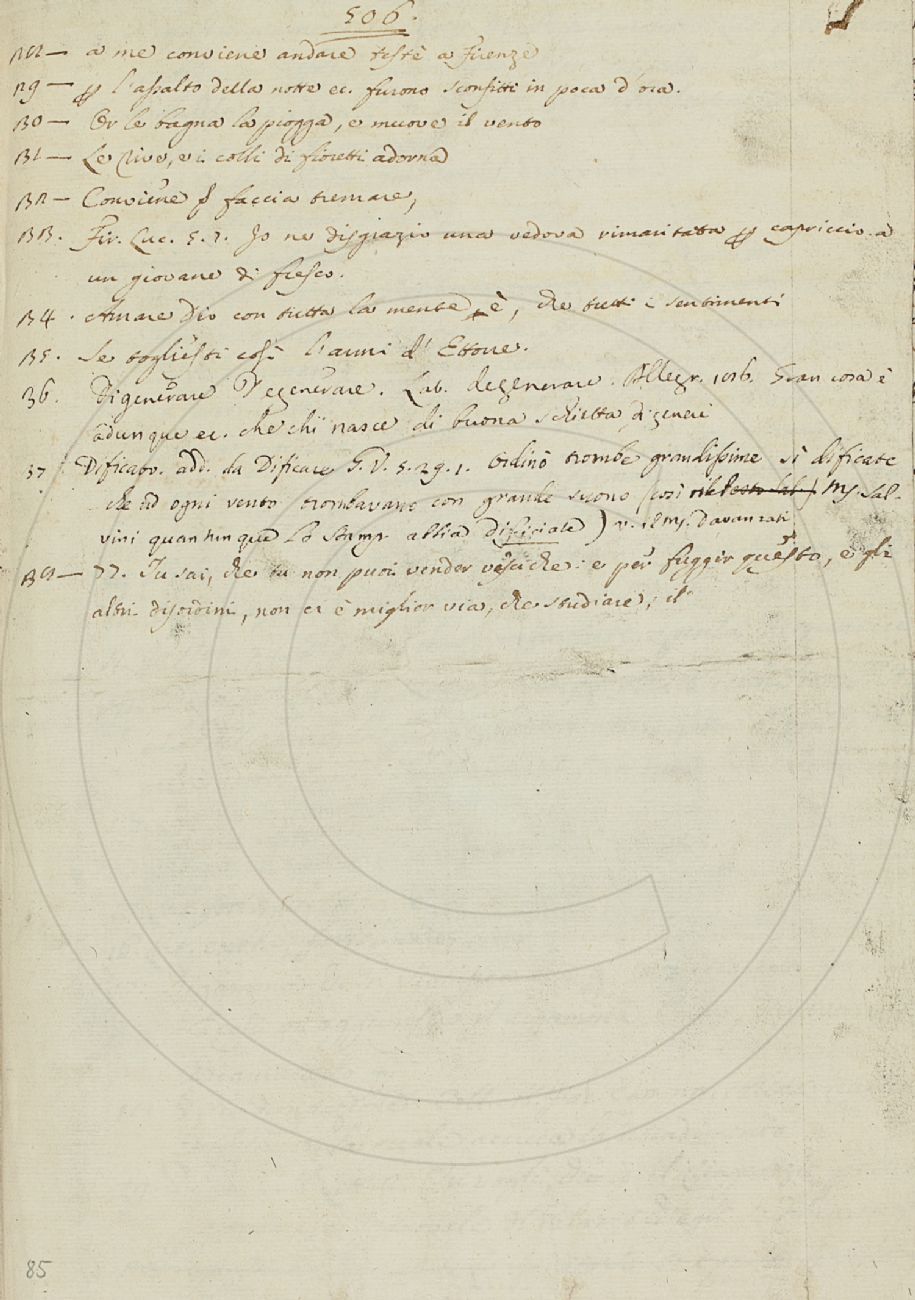 506.
128 — a me conviene andare testè a Firenze
29 — p l'assalto della notte ec. furono sconfitti in poca d'ora.
30 — Or le bagna la pioggia, e muove il vento
31 — Le rive, e i colli di fioretti adorna
32 — Conviene p faccia tremare,
133. Fir. Luc. 5. 7. Io ne disgrazio una vedova rimaritata p capriccio a
un giovane di fresco.
134. Amare Dio con tutta la mente, è, che tutti i sentimenti
135. Se togliesti così l'armi d' Ettore.
36. Digenerare Degenerare. Lab. degenerare. Allegr. 106. Gran cosa è
adunque ec. che chi nasce di buona schiatta digeneri
37. Dificato. add. da Dificare G. V. 5. 29. 1. Ordinò trombe grandissime sì dificate
che ad ogni vento trombavano con grande suono (così MS. Sal-
vini quantunque lo Stamp. abbia ) v. il MS. Davanzati
138 — 77. Tu sai, che tu non puoi vender vesciche: e per fuggir questo, e gli
altri disordini, non ci è miglior via, che studiare, il
85